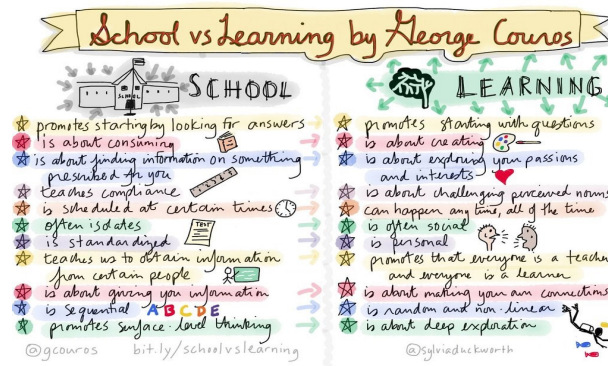 School vs Learning by George Couros
SCHOOL
SCHOOL
promotes starting by looking for answers
is about consuming
is about finding information on something
prescribed for you
teaches compliance
is scheduled at certain times
often isolates
is standardized
TEST
teaches us to obtain information
from certain people
is about giving you information
is sequential ABCDE
promotes surface-level thinking
@gcouros bit.ly/schoolvslearning
LEARNING
promotes starting with questions
is about creating
is about exploring your passions
and interests
is about challenging perceived norms
can happen any time, all of the time
is often social
is personal
promotes that everyone is a teacher
and everyone is a learner
is about making your own connections
is random and non-linear
is about deep exploration
@sylviaduckworth